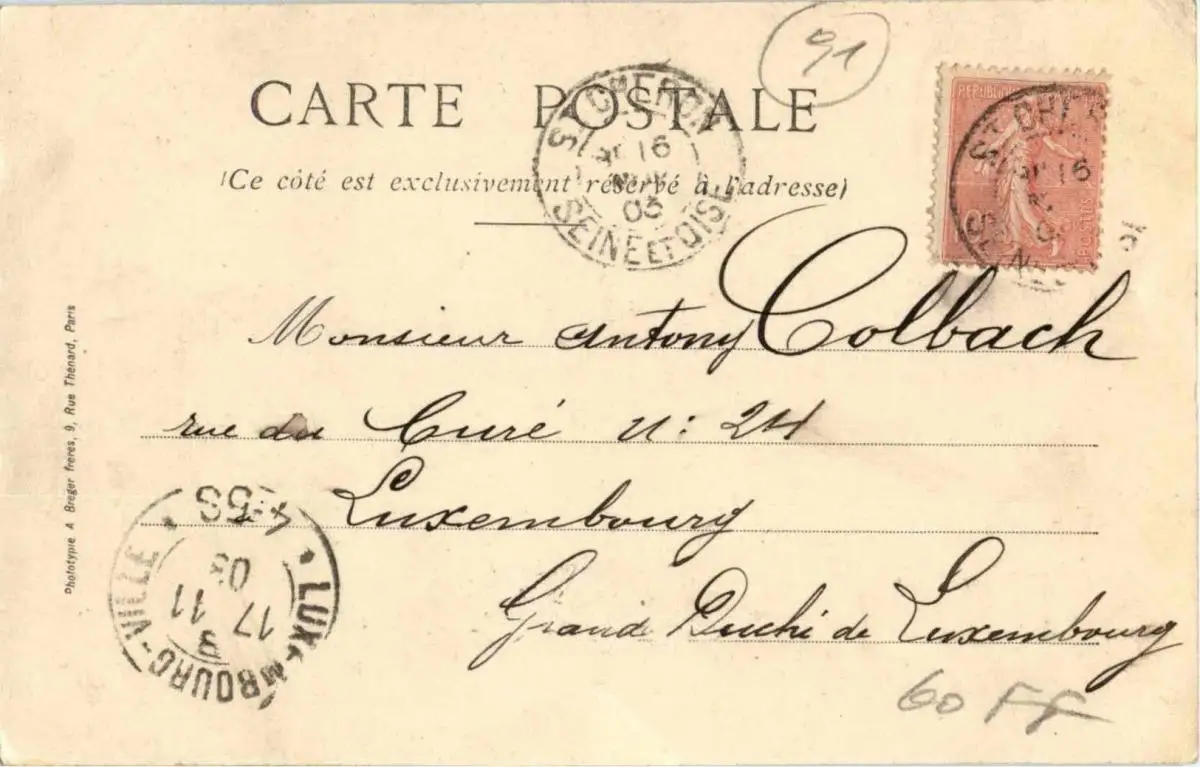 91
CARTE POSTALE
(Ce côté est exclusivement réservé à l'adresse)
ST CHERON
16
03
SEINE ET OISE
ST CHER
16
Monsieur Antony Colbach
rue du Curé n: 24
Luxembourg
Grand Duché de Luxembourg
Phototypie A Breger freres, 9, Rue Thénard, Paris
LUXEMBOURG-VILLE
4-5S
17 11
03
60 FF